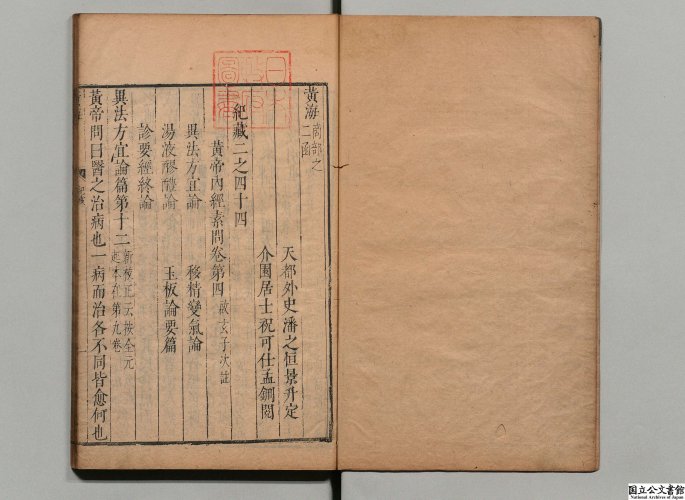 黃海
二函
天都外史潘之恒景升定
介園居士祝可仕孟鋼閱
紀藏二之四十四
黃帝內經素問卷第四 啟玄子次註
異法方宜論 移精變氣論
湯液醪醴論 玉板論要篇
診要經終論
異法方宜論篇第十二 新校正云按全元
起本在第九卷
黃帝問曰醫之治病也一病而治各不同皆愈何也
国立公文書館
National Archives of Japan